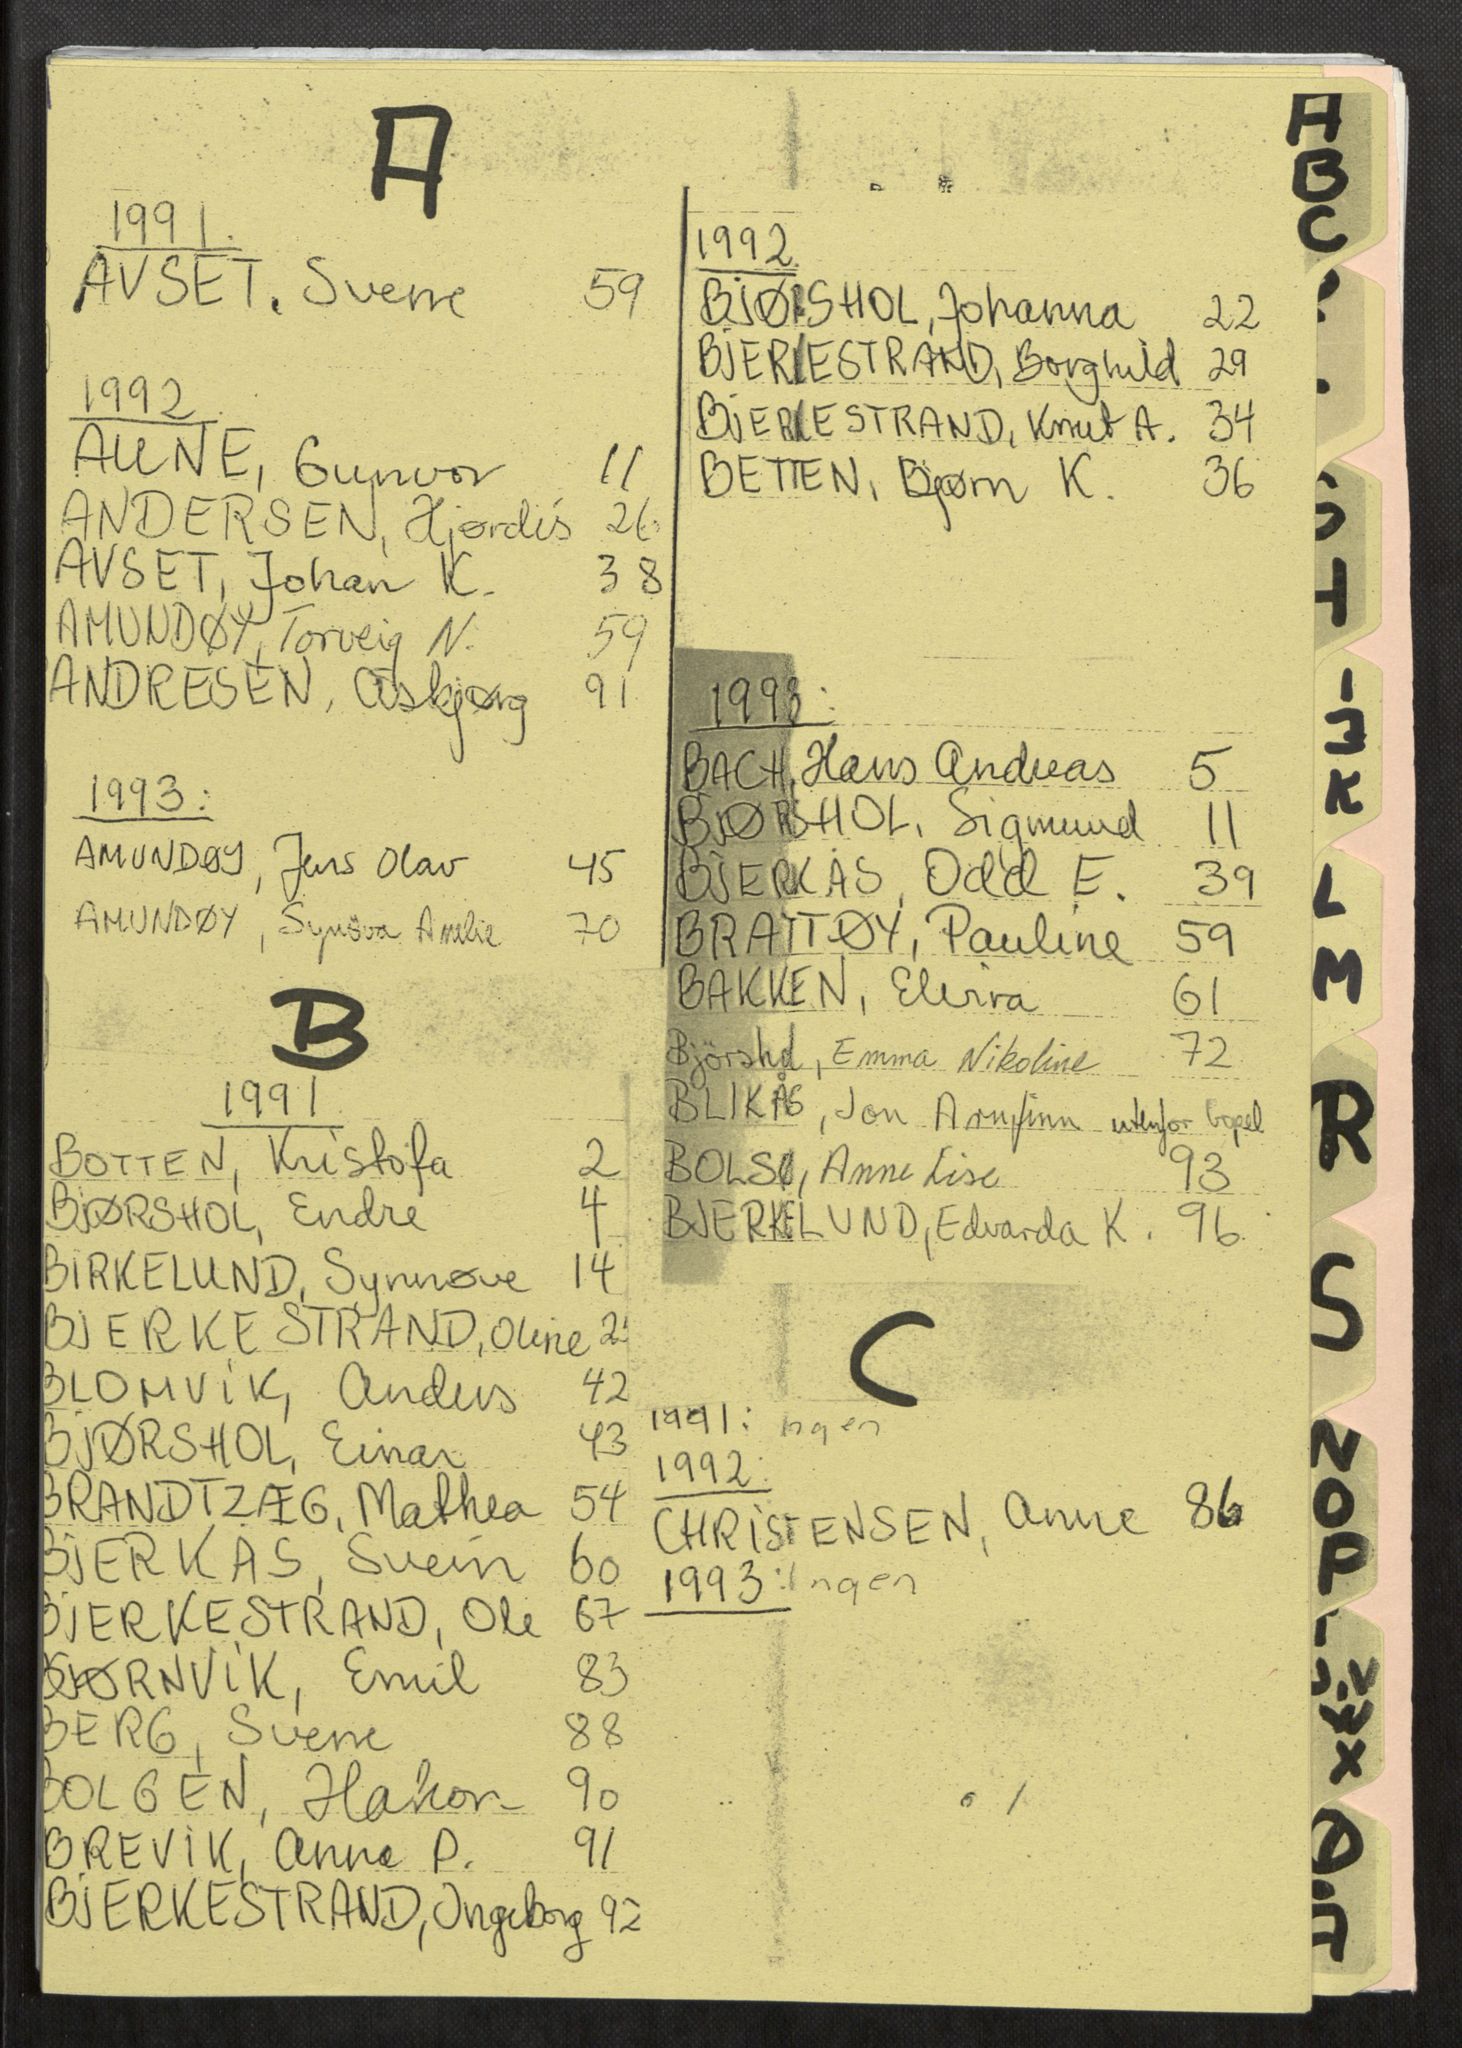 A
1991.
AVSET, Sverre 59
1992
AUNE, Gunvor 11
ANDERSEN, Hjørdis 26
AVSET, Johan K. 38
AMUNDØY, Torveig N. 59
ANDRESEN, Asbjørg 91
1993:
AMUNDØY, Jens Olav 45
AMUNDØY, Synöva Amelie 70
B
1991
BOTTEN, Kristofa 2
BJØRSHOL, Endre 4
BIRKELUND, Synnøve 14
BJERKESTRAND, Oline
BLOMVIK, Anders 42
BJØRSHOL, Einar 43
BRANDTZÆG, Mathea 54
BJERKÅS, Svein 60
BJERKESTRAND, Ole 67
BJØRNVIK, Emil 83
BERG, Sverre 88
BOLGEN, Håkon 90
BREVIK, Anna P. 91
BJERKESTRAND, Ingeborg 92
1992
BJØRSHOL, Johanna 22
BJERKESTRAND, Borghild 29
BJERKESTRAND, Knut A. 34
BETTEN, Bjørn K. 36
1993:
BACH, Hans Andreas 5
BJØRSHOL, Sigmund 11
BJERKÅS, Odd E. 39
BRATTØY, Pauline 59
BAKKEN, Elvira 61
Björshol, Emma Nikoline 72
BLIKÅS, Jon Arnfinn utenfor bopel
BOLSØ, Anne Lise 93
BJERKELUND, Edvarda K. 96
C
1991: Ingen
1992:
CHRISTENSEN, Anne 86
1993: Ingen
A
B
C
S
T
I
J
K
L
M
R
S
N
O
P
V
X
Ø